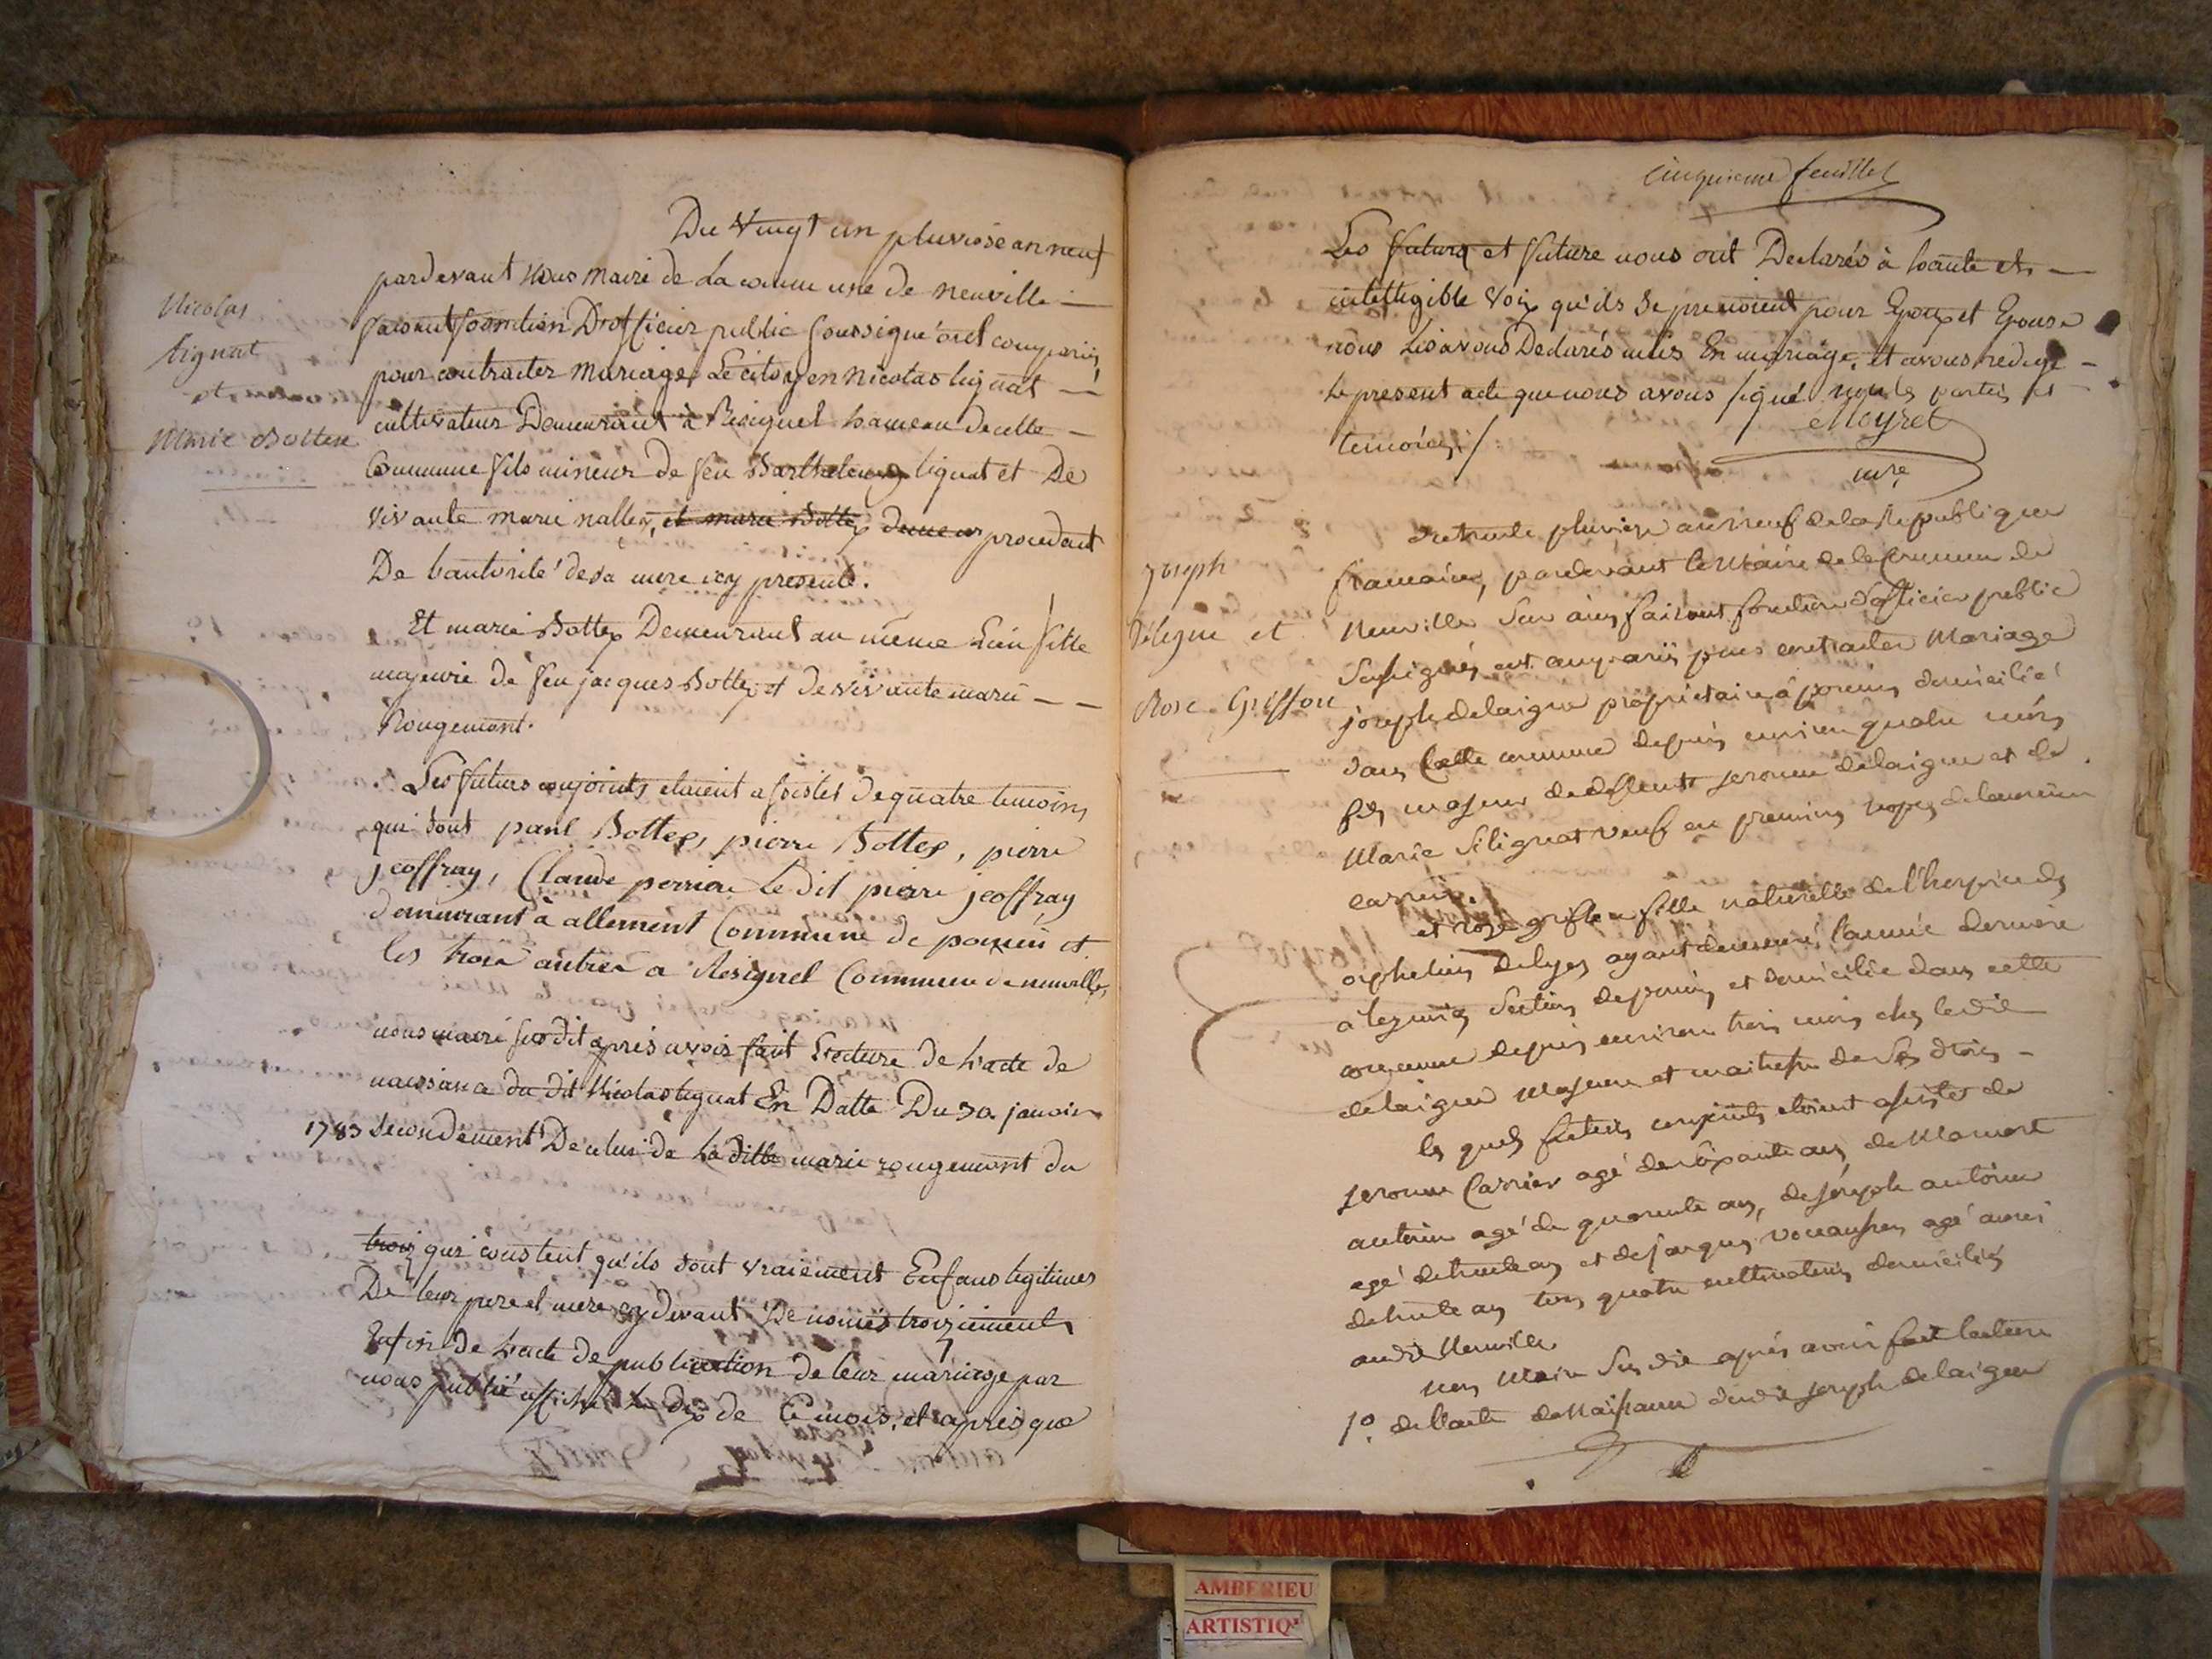 Du vingt un pluviose an neuf
pardevant nous maire de la commune de neuville
faisant fonction D'officier public soussigné ont comparus
pour contracter mariage, Le citoyen nicolas lignat
cultivateur Demeurant à Resignel hameau de cette
Commune fils mineur de feu Barthelemy lignat et De
vivante marie nallet, et marie Bottex demeur procedant
De l'autorité de sa mere icy presente.
Et marie Bottex Demeurant au meme Lieu fille
majeure de feu jacques Bottex et de vivante marie
Rougemont.
Les futurs conjoints etaient assistés de quatre temoins
qui sont paul Bottex, pierre Bottex, pierre
jeoffray, Claude perrier le dit pierre jeoffray
demeurant à allement Commune de poncin et
les trois autres a Resignel Commune de neuville,
nous maire susdit apres avoir fait Lecture de L'acte de
naissance du dit Nicolas lignat En Datte Du 30 janvier
1783 secondement De celui de la ditte marie rougemont du
trois qui constent qu'ils sont vraiement Enfans legitimes
De leur pere et mere cy devant Denomiés troiziemement
Enfin de L'acte de publication de leur mariage par
nous publié affiché Le dix de Ce mois, et après que
Nicolas
lignat
et
Marie Bottex
cinquieme feuillet
Les futurs et future nous ont Declarés à haute et
intelligible voix qu'ils se prenoient pour Epoux et Epouse
nous Les avons Declarés unis En mariage, et avons redigé
Le present acte que nous avons signé non les parties et
temoins /
Moyret
mre
du trente pluviose an neuf de la Republique
francaise, pardevant le Maire de la commune de
Neuville sur ains faisant fonction d'officier public
Soussignés ont comparus pour contracter Mariage
joseph delaigue propriétaire à poncin domicilié
dans Cette commune depuis environ quatre mois
fils majeur de deffunt jerome delaigue et de
Marie Silignat veuf en premiers nopces de
carrier.
et Rose griffon fille naturelle de l'hospice des
orphelins de lyon ayant demeuré l'année derniere
à Section de poncin et domiciliée dans cette
commune depuis environ trois mois chez ledit
delaigue Majeure et maitresse de Ses droits
les quels futurs conjoints etoient assistés de
jerome Carrier agé de soixante ans, de
antoine agé de quarente ans, de joseph antoine
agé de trente ans et de jacques agé aussi
de trente ans tous quatre cultivateurs domiciliés
audit Neuville
nous Maire Susdit aprés avoir fait lecture
1° de l'acte de Naissance dudit joseph delaigue
joseph
Delegue et
Rose Griffon
AMBERIEU
ARTISTIQ